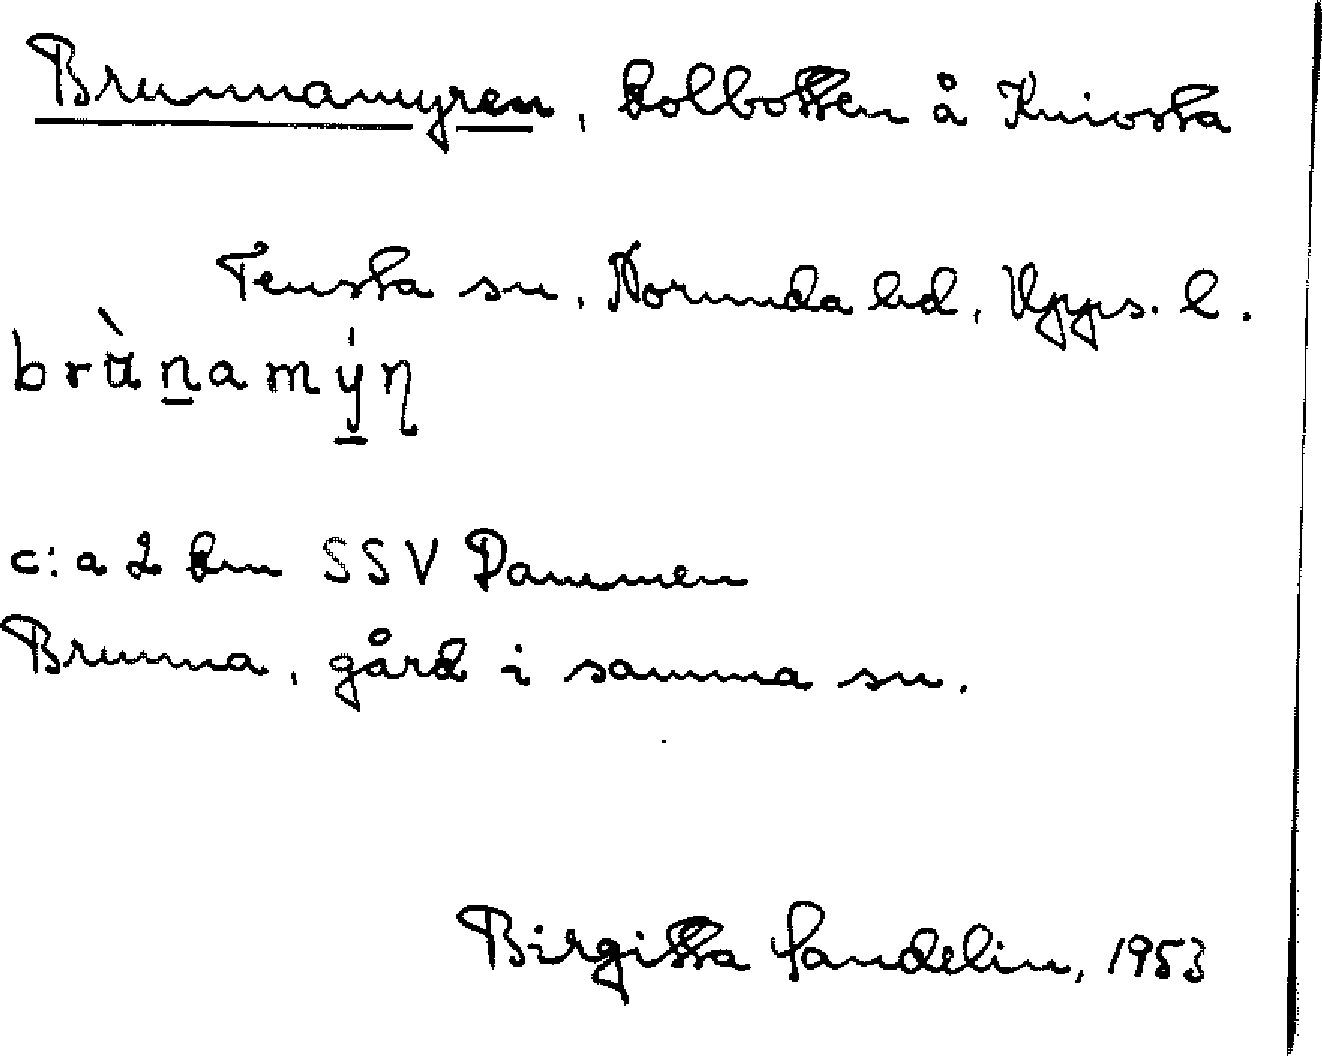 Brunnamyren, kolbotten å Kniosta
Tensta sn, Norunda hd, Upps. l.
brùn̲amýn̩
c:a 2 km SSV Dammen
Brunna, gård i samma sn.
Birgitta Sandelin, 1953